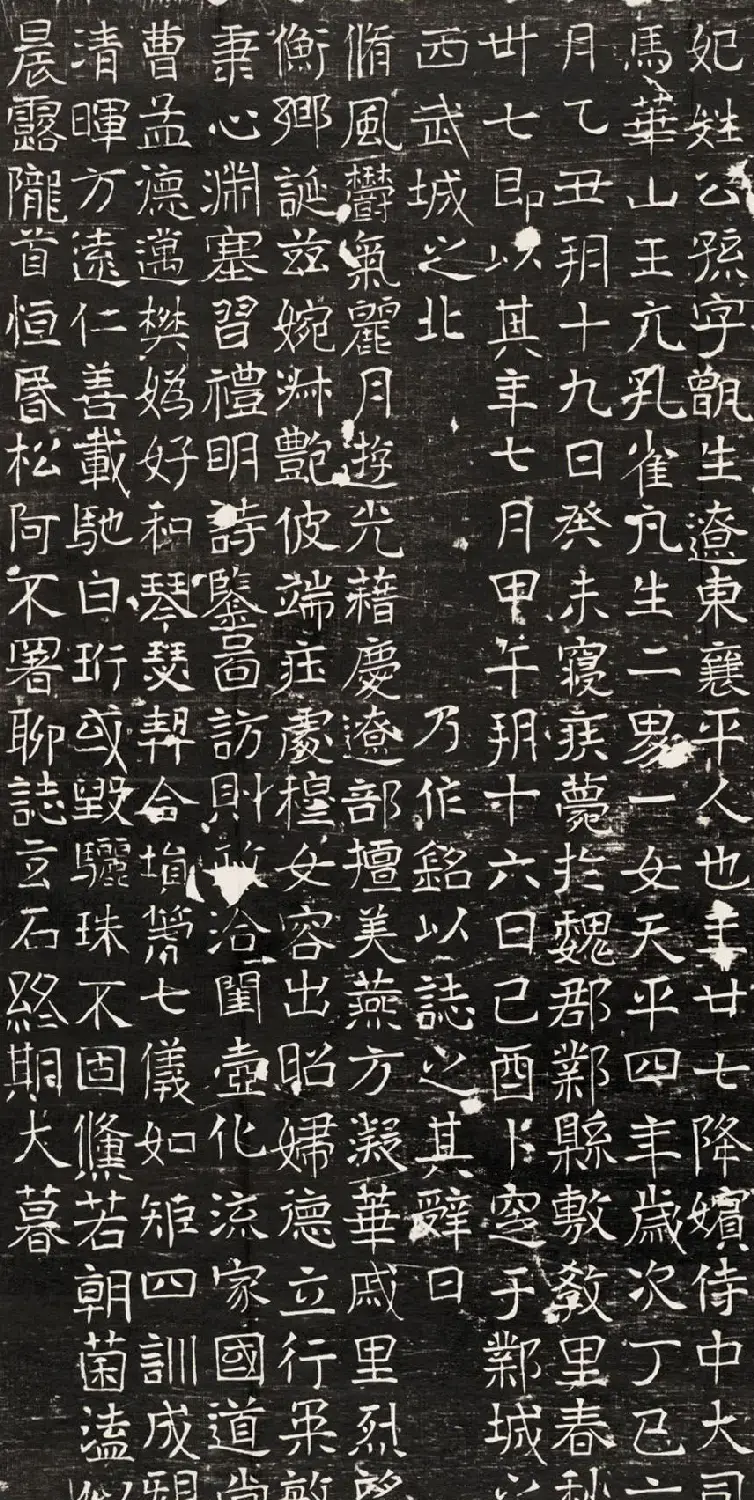 妃姓公孫字甑生遼東襄平人也年廿七降嬪侍中大司
馬華山王亢孔雀凡生二男一女天平四年歲次丁巳六
月乙丑朔十九日癸未寢疾薨於魏郡鄴縣敷教里春秋
卅七即以其年七月甲午朔十六日己酉卜窆于鄴城之
西武城之北 乃作銘以誌之其辭曰
脩風鬱氣麗月遊光藉慶遼部擅美燕方凝華戚里烈
衡鄉誕茲婉淋艷彼端莊處穆女容出昭婦德立行柔敏
秉心淵塞習禮明詩鑒啚訪則洽閨壼化流家國道尚
曹孟德邁樊嬀好和琴瑟契合塤箎七儀如矩四訓成
清暉方遠仁善載馳白珩或毀驪珠不固儵若朝菌溘
晨露隴首恒昬松阿不署聊誌玄石終期大暮